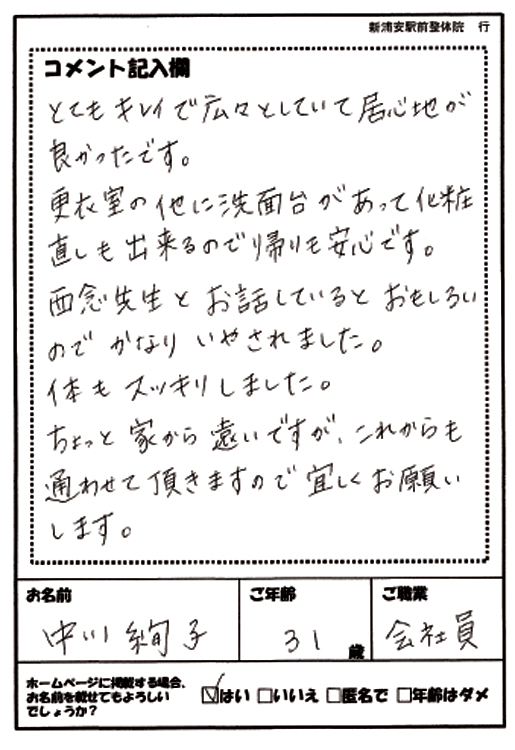 新浦安駅前整体院 行
コメント記入欄
とてもキレイで広々としていて居心地が
良かったです。
更衣室の他に洗面台があって化粧
直しも出来るので帰りも安心です。
西念先生とお話しているとおもしろい
のでかなりいやされました。
体もスッキリしました。
ちょっと家から遠いですが、これからも
通わせて頂きますので宜しくお願い
します。
お名前 ご年齢 ご職業
中川 絢子 31歳 会社員
ホームページに掲載する場合、
お名前を載せてもよろしい
でしょうか?
☑はい □いいえ □匿名で □年齢はダメ